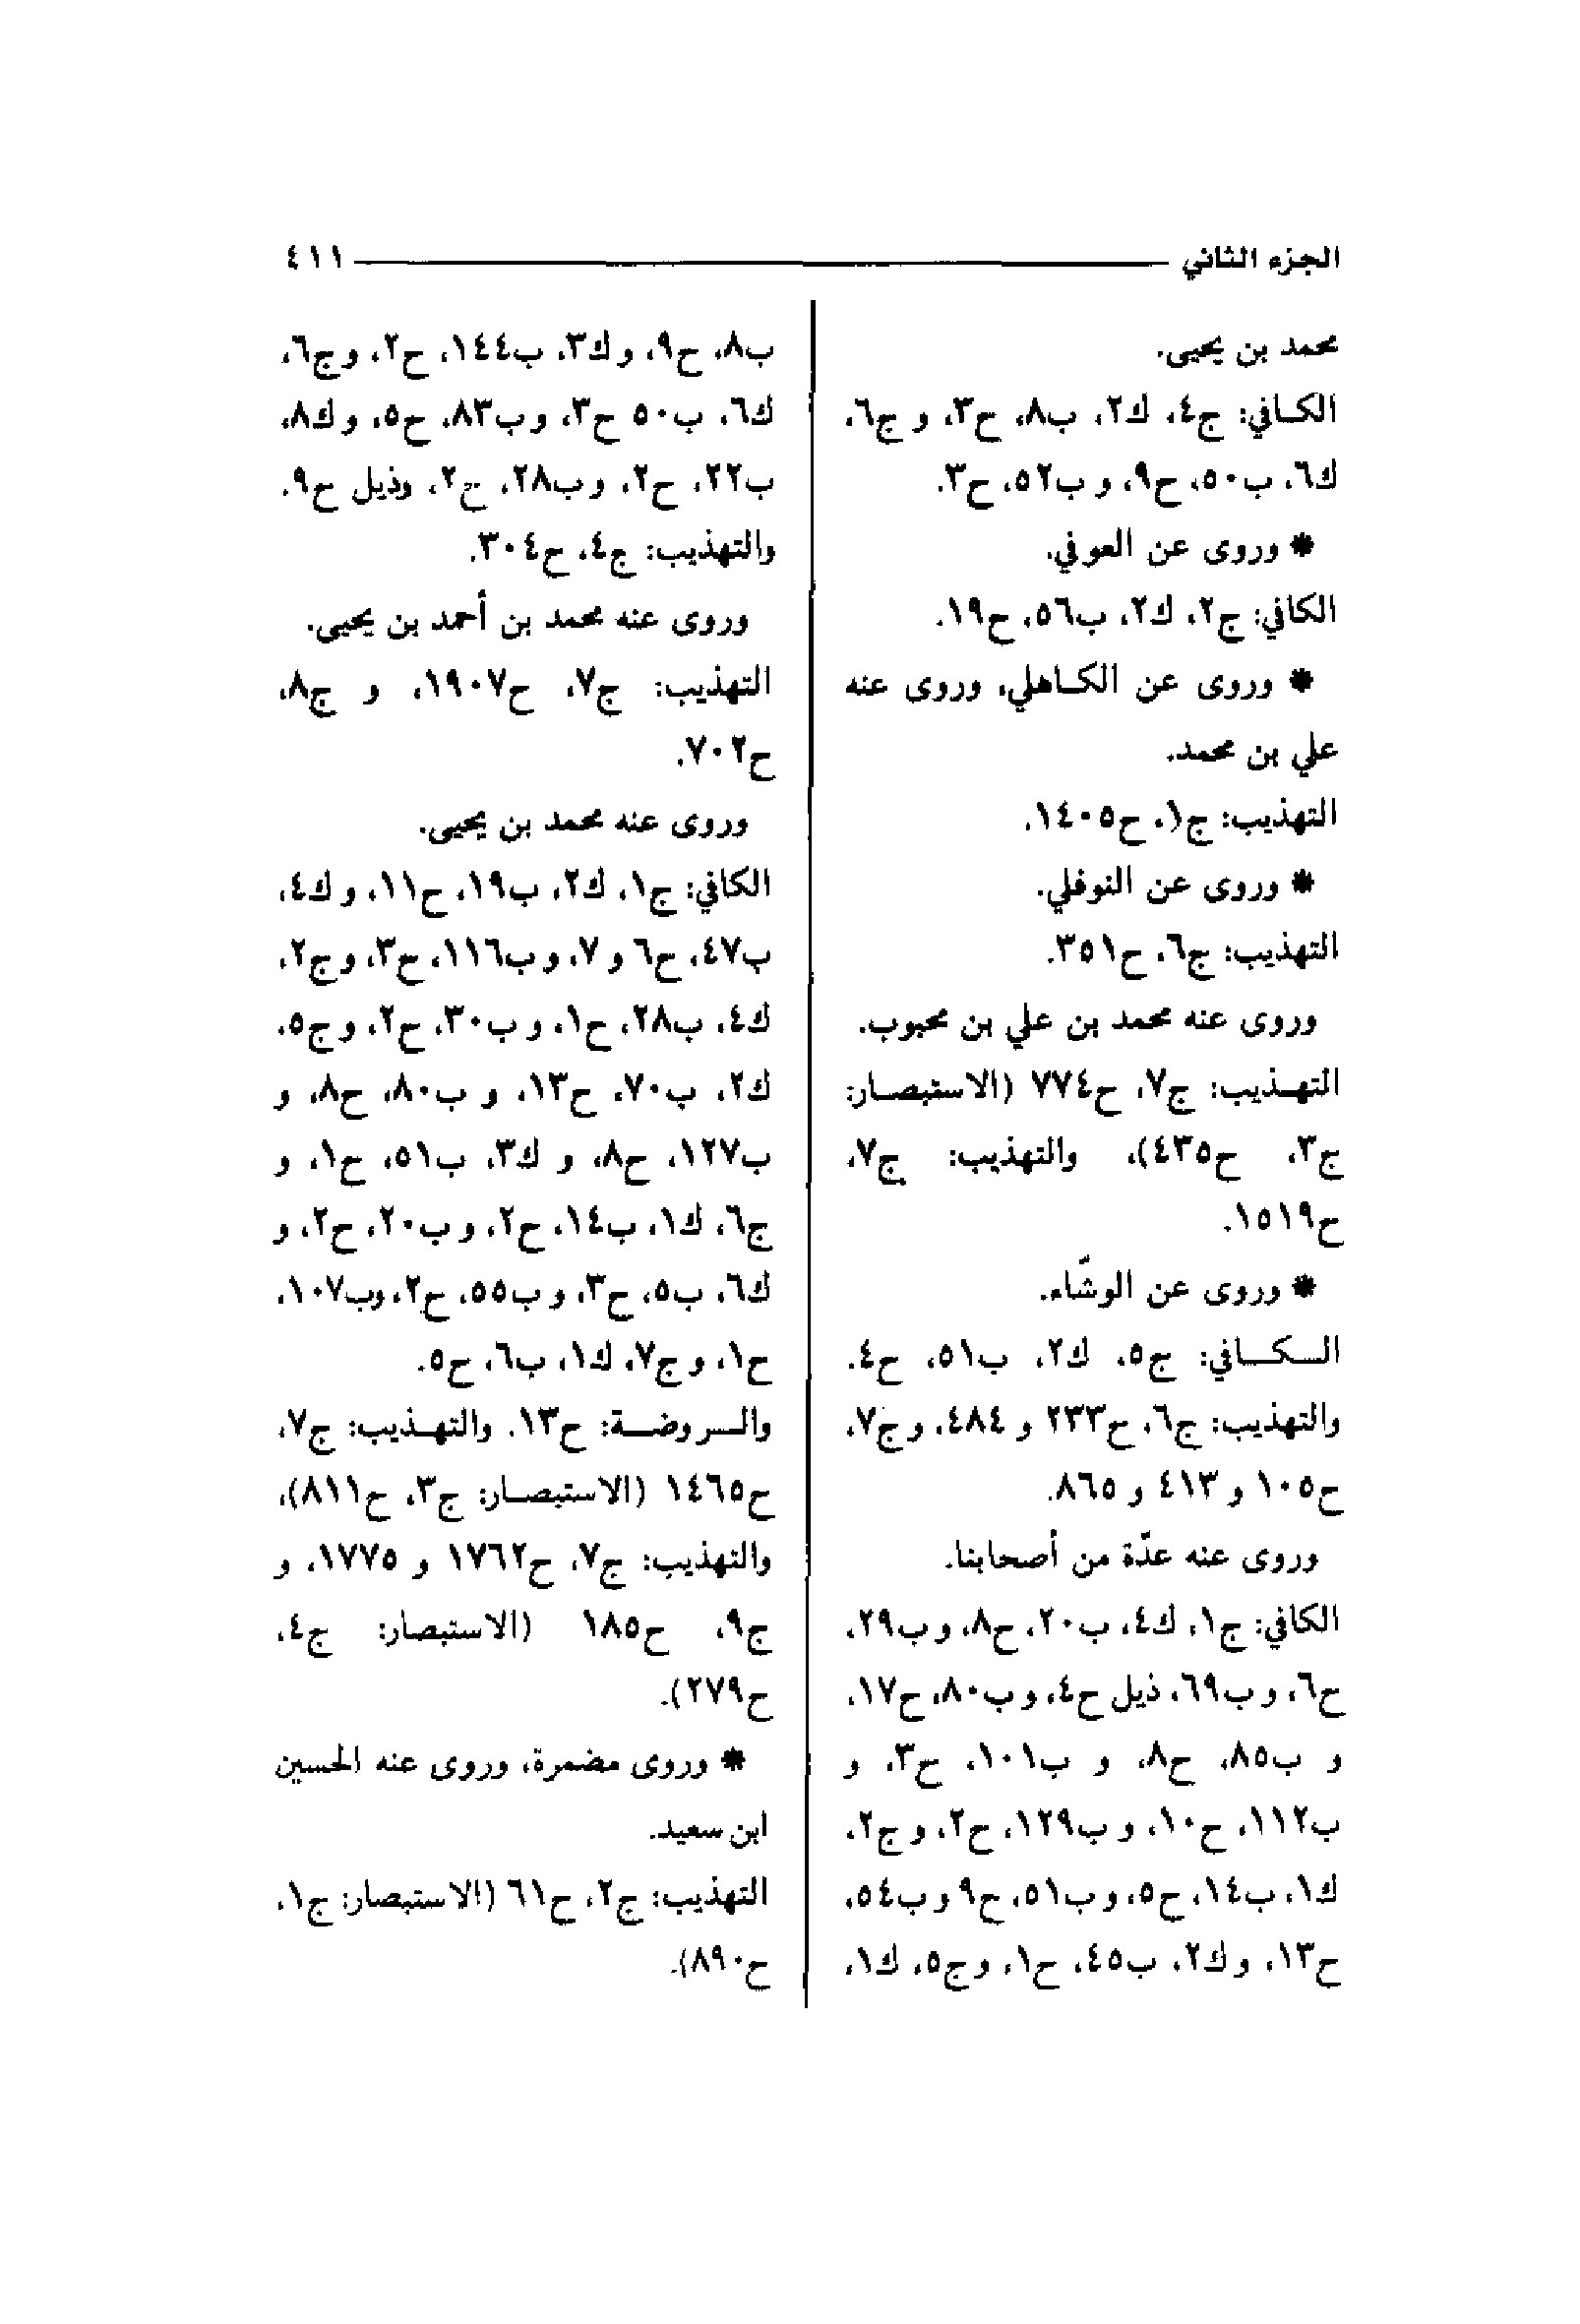 الجزء الثاني ٤١١
محمد بن يحيى.
الكافي: ج٤، ك٢، ب٨، ح٣، و ج٦،
ك٦، ب٥٠، ح٩، و ب٥٢، ح٣.
* وروى عن العوفي.
الكافي: ج٢، ك٢، ب٥٦، ح١٩.
* وروى عن الكاهلي، وروى عنه
علي بن محمد.
التهذيب: ج١، ح١٤٠٥.
* وروى عن النوفلي.
التهذيب: ج٦، ح٣٥١.
وروى عنه محمد بن علي بن محبوب.
التهذيب: ج٧، ح٧٧٤ (الاستبصار:
ج٣، ح٤٣٥)، والتهذيب: ج٧،
ح١٥١٩.
* وروى عن الوشّاء.
الكافي: ج٥، ك٢، ب٥١، ح٤.
والتهذيب: ج٦، ح٢٣٣ و ٤٨٤، و ج٧،
ح١٠٥ و ٤١٣ و ٨٦٥.
وروى عنه عدّة من أصحابنا.
الكافي: ج١، ك٤، ب٢٠، ح٨، و ب٢٩،
ح٦، و ب٦٩، ذيل ح٤، و ب٨٠، ح١٧،
و ب٨٥، ح٨، و ب١٠١، ح٣، و
ب١١٢، ح١٠، و ب١٢٩، ح٢، و ج٢،
ك١، ب١٤، ح٥، و ب٥١، ح٩ و ب٥٤،
ح١٣، و ك٢، ب٤٥، ح١، و ج٥، ك١،
ب٨، ح٩، و ك٣، ب١٤٤، ح٢، و ج٦،
ك٦، ب٥٠ ح٣، و ب٨٣، ح٥، و ك٨،
ب٢٢، ح٢، و ب٢٨، ح٢، وذيل ح٩.
والتهذيب: ج٤، ح٣٠٤.
وروى عنه محمد بن أحمد بن يحيى.
التهذيب: ج٧، ح١٩٠٧، و ج٨،
ح٧٠٢.
وروى عنه محمد بن يحيى.
الكافي: ج١، ك٢، ب١٩، ح١١، و ك٤،
ب٤٧، ح٦ و ٧، و ب١١٦، ح٣، و ج٢،
ك٤، ب٢٨، ح١، و ب٣٠، ح٢، و ج٥،
ك٢، ب٧٠، ح١٣، و ب٨٠، ح٨، و
ب١٢٧، ح٨، و ك٣، ب٥١، ح١، و
ج٦، ك١، ب١٤، ح٢، و ب٢٠، ح٢، و
ك٦، ب٥، ح٣، و ب٥٥، ح٢، وب١٠٧،
ح١، و ج٧، ك١، ب٦، ح٥.
والروضة: ح١٣. والتهذيب: ج٧،
ح١٤٦٥ (الاستبصار: ج٣، ح٨١١)،
والتهذيب: ج٧، ح١٧٦٢ و ١٧٧٥، و
ج٩، ح١٨٥ (الاستبصار: ج٤،
ح٢٧٩).
* وروى مضمرة، وروى عنه الحسين
ابن سعيد.
التهذيب: ج٢، ح٦١ (الاستبصار: ج١،
ح٨٩٠).